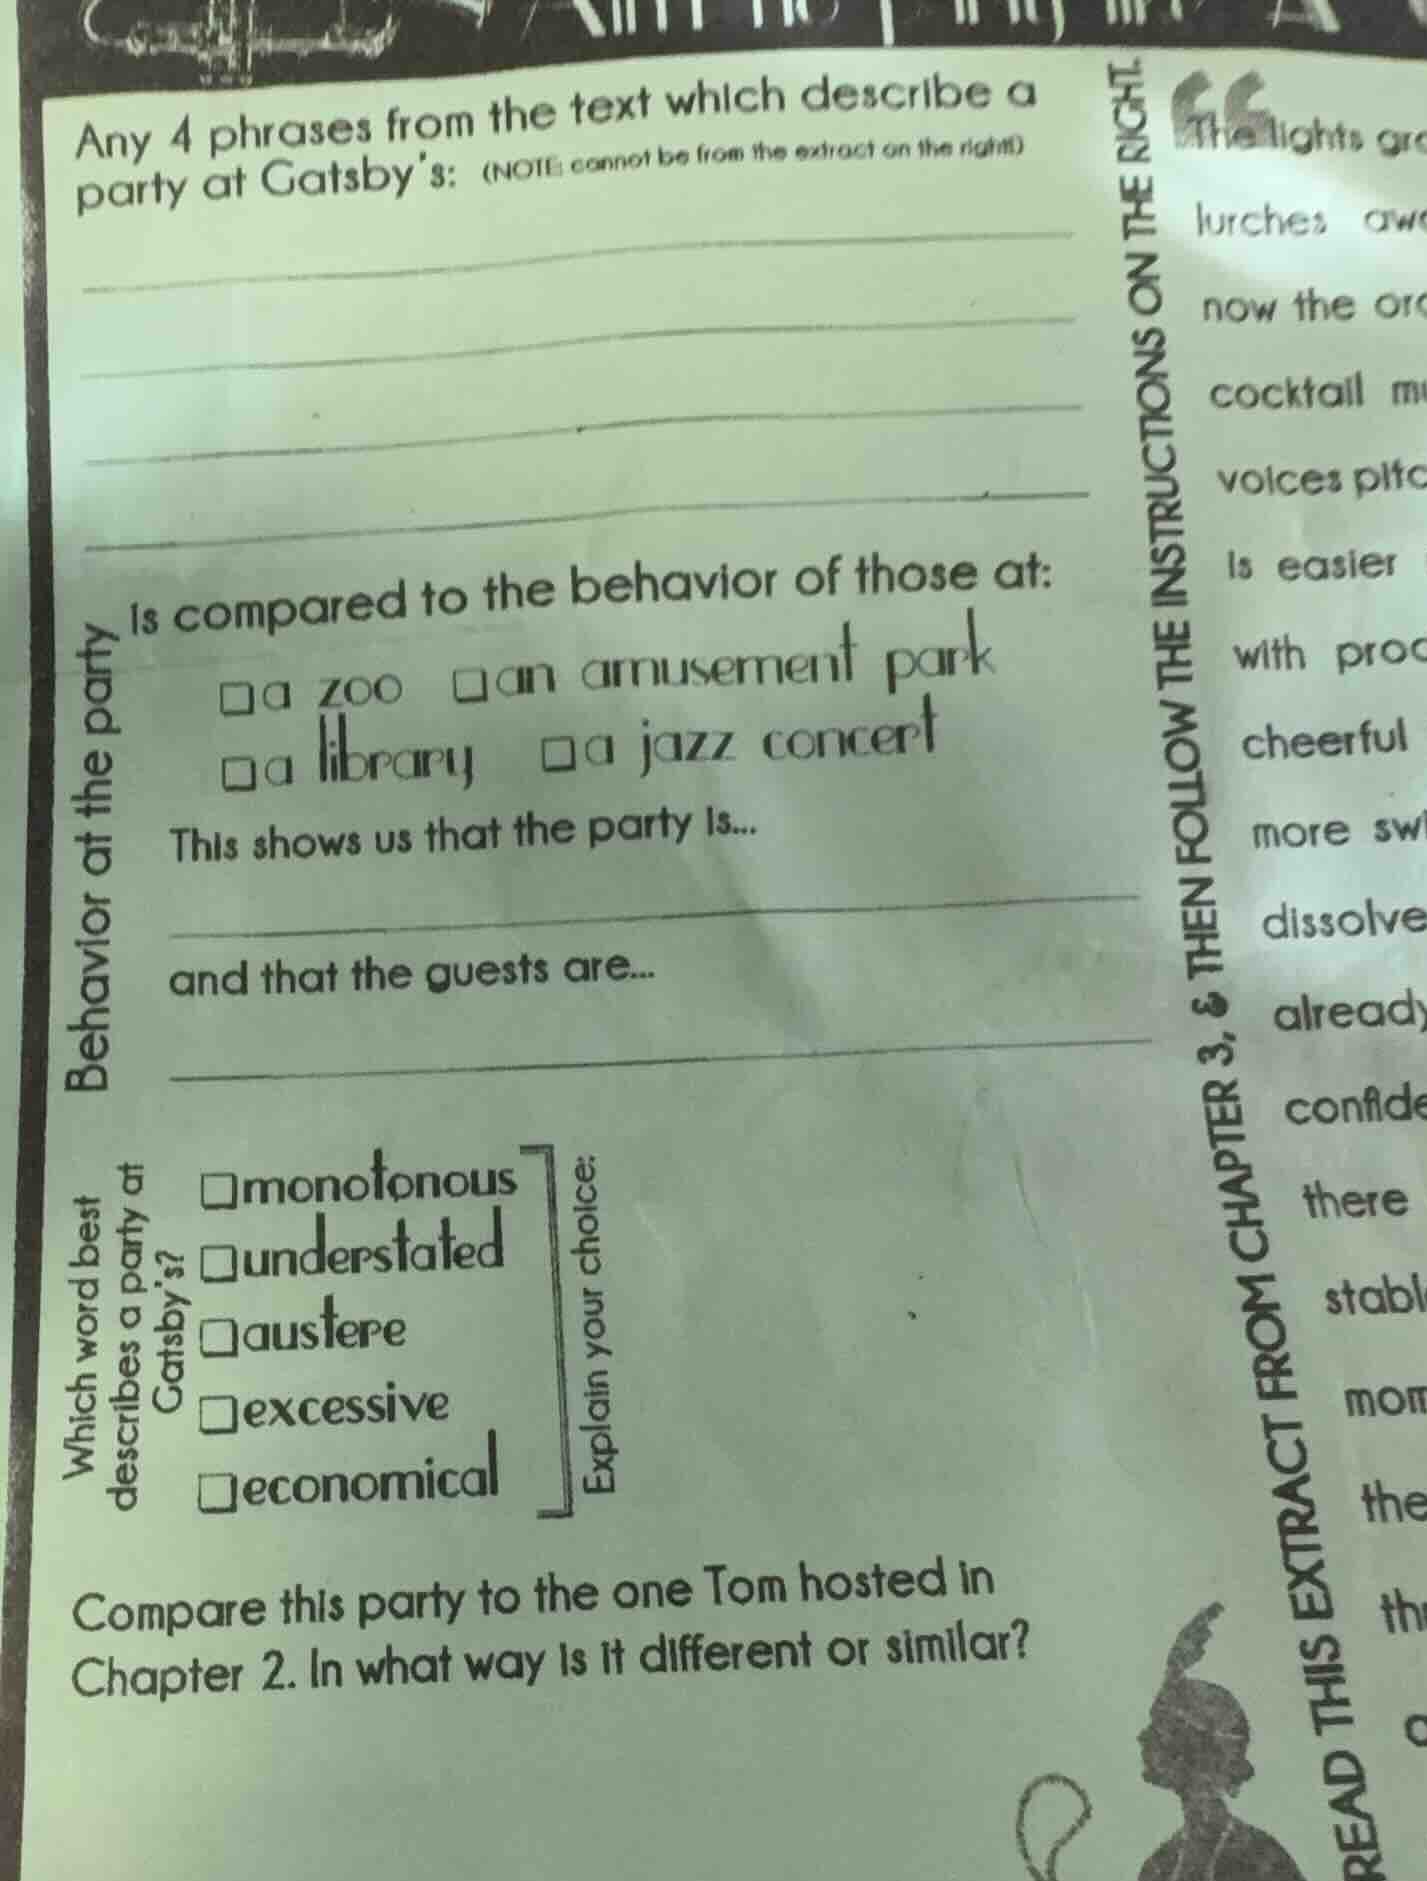 Any 4 phrases from the text which describe a
party at Gatsby's: (NOTE: cannot be from the extract on the right!)
Behavior at the party
is compared to the behavior of those at:
a zoo an amusement park
a library a jazz concert
This shows us that the party is...
and that the guests are...
Which word best
describes a party at
Gatsby's?
monotonous
understated
austere
excessive
economical
Explain your choice:
Compare this party to the one Tom hosted in
Chapter 2. In what way is it different or similar?
READ THIS EXTRACT FROM CHAPTER 3, & THEN FOLLOW THE INSTRUCTIONS ON THE RIGHT.
The lights
lurches
now the
cocktail
voices
is easier
with
cheerful
more
there